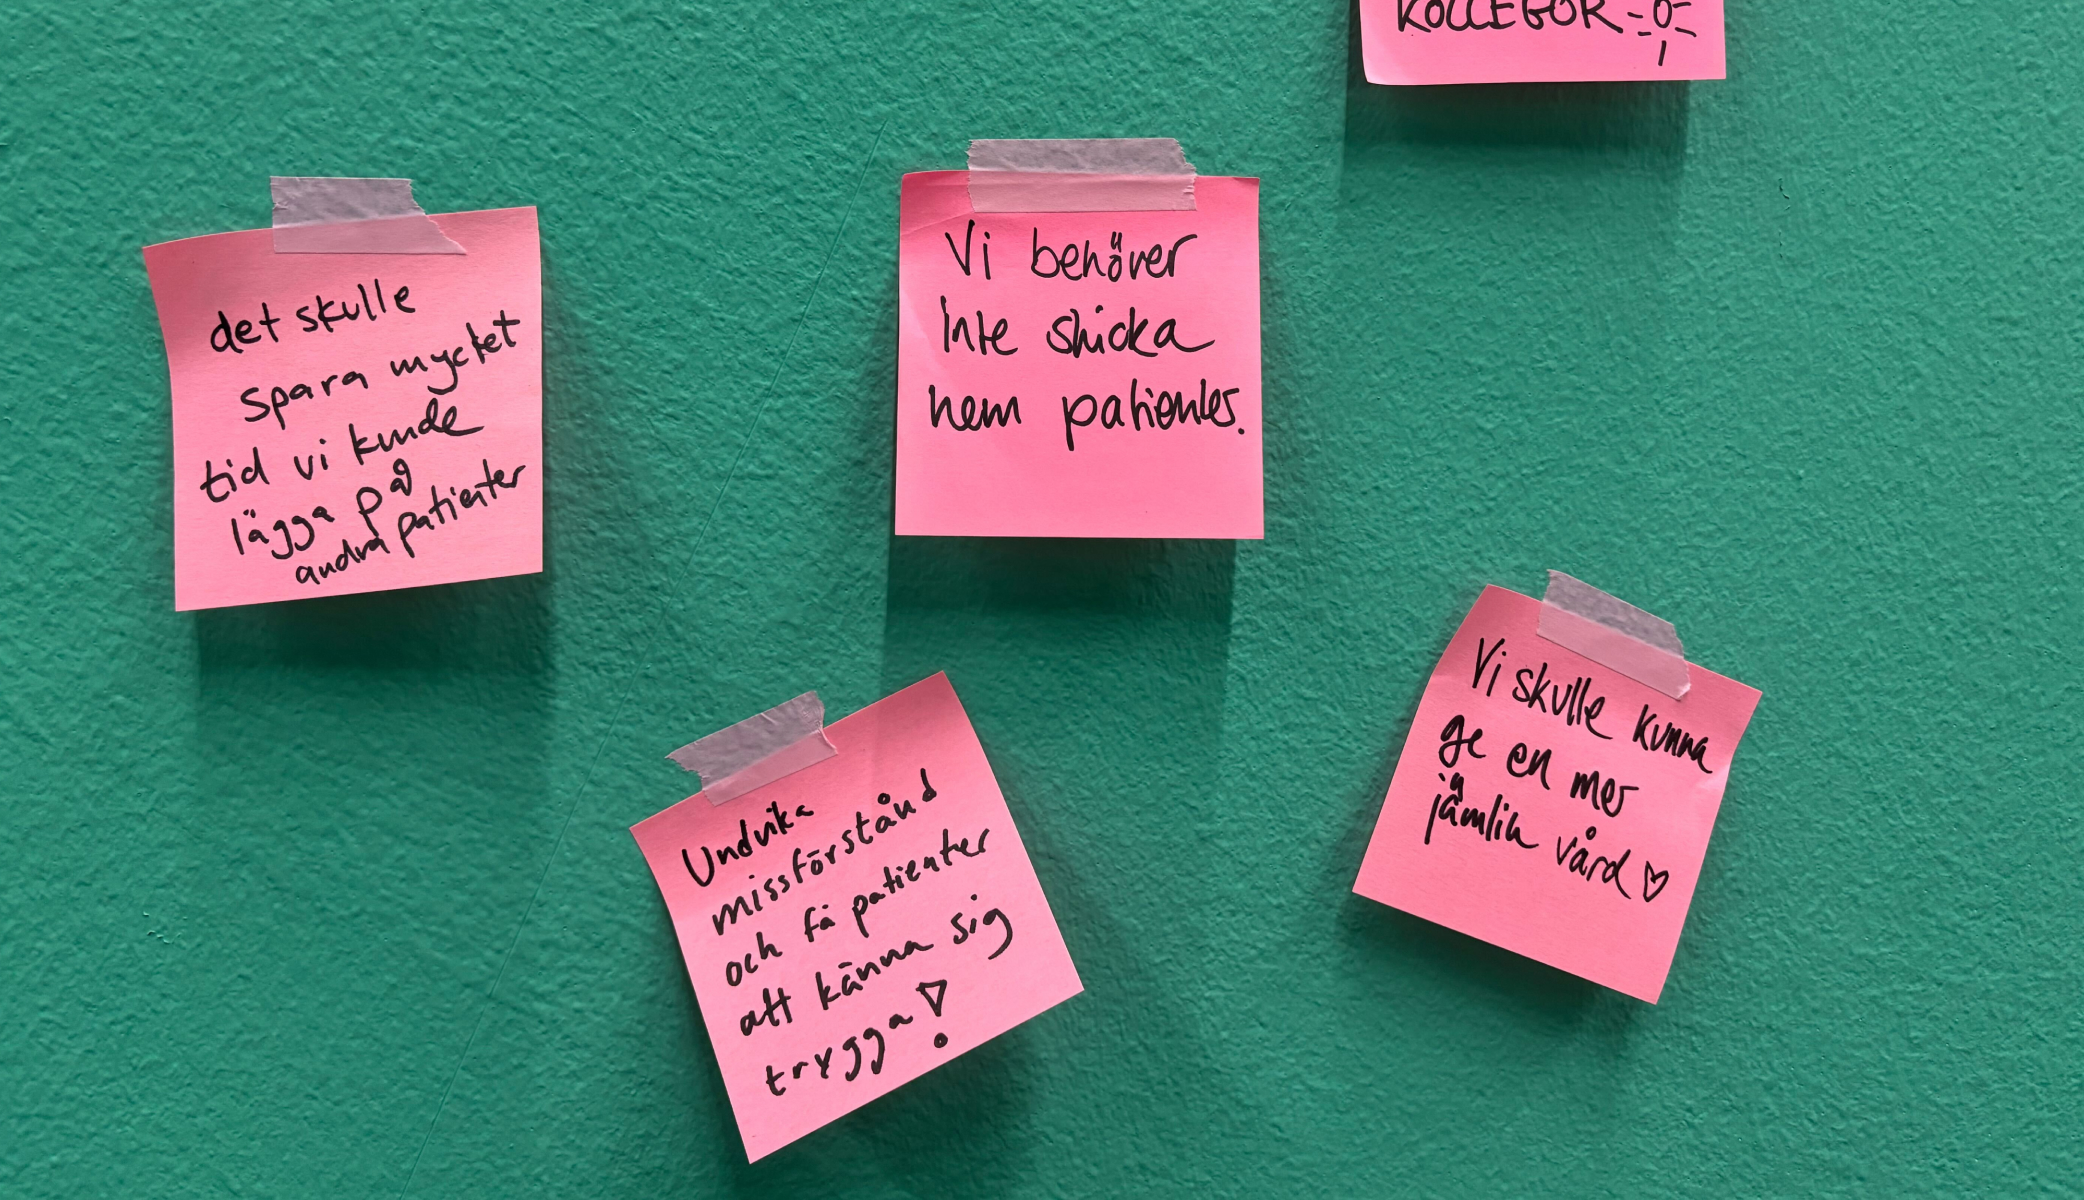 KOLLEGOR
det skulle
spara mycket
tid vi kunde
lägga på
andra patienter
Vi behöver
inte skicka
hem patienter.
Undvika
missförstånd
och få patienter
att känna sig
trygga!
Vi skulle kunna
ge en mer
jämlik vård ♡